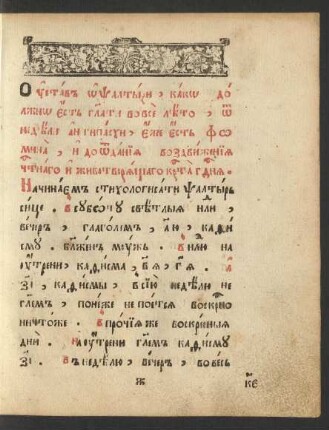 О уставѣ ѡ ѱалтыри, како до
лжно естъ глати во все лѣто, ѿ
недѣли антипасхи, еже есть ѳо
мина, и до ѿданїя воздвиженїя
чтнаго и животворящаго крта гдня.
Начинаемъ стихологисати ѱалтырь
сице. в субботу свѣтлыя нли,
вечръ, глаголемъ, а҃ю, каѳи
сму. блженъ мужъ. в нлю на
оутрени, каѳисма, в҃я, г҃я. а
з҃і, каѳисмы, в сїю недѣлю не
глемъ, понеже не поется воскрно
ничтоже. в прочїя же воскрныя
дни. на оутрени глемъ каѳисму
з҃і. в недѣлю, вечеръ, во весь
ж
ке